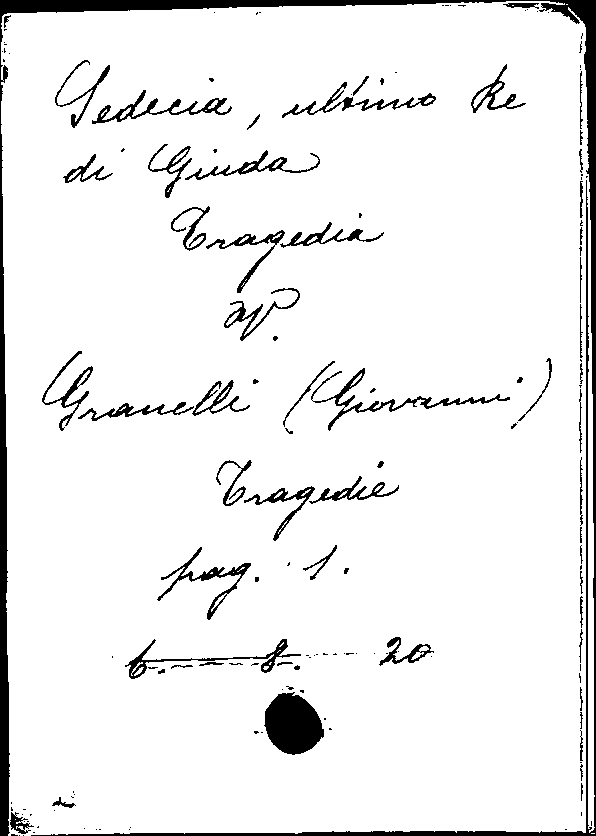 Sedecia, ultimo Re
di Giuda
Tragedia
ap.
Granelli (Giovanni)
Tragedie
pag. 1.
6. 8. 20